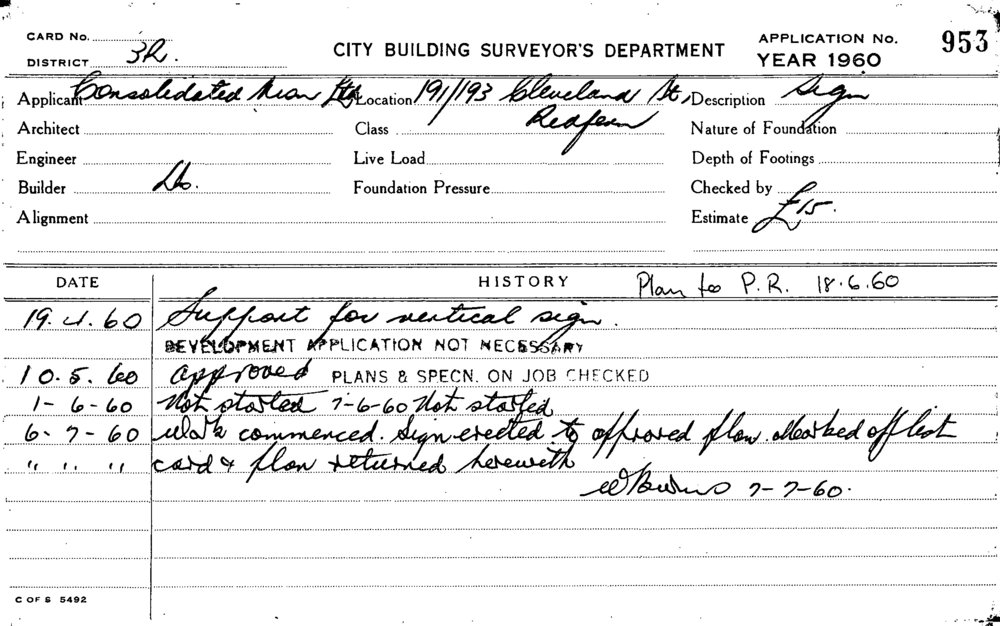 CARD No.
DISTRICT 3R.
CITY BUILDING SURVEYOR'S DEPARTMENT
APPLICATION No. 953
YEAR 1960
Applicant Consolidated Neon Ltd Location 191/193 Cleveland St, Description Sign
Redfern
Architect Class Nature of Foundation
Engineer Live Load Depth of Footings
Builder Do. Foundation Pressure Checked by
Alignment Estimate £15.
DATE HISTORY Plan to P.R. 18.6.60
19.4.60 Support for vertical sign.
DEVELOPMENT APPLICATION NOT NECESSARY
10.5.60 approved PLANS & SPECN. ON JOB CHECKED
1-6-60 Not started 7-6-60 Not started
6-7-60 Work commenced. Sign erected to approved plan. Marked off list
" " " card & plan returned herewith
7-7-60.
C OF S 5492